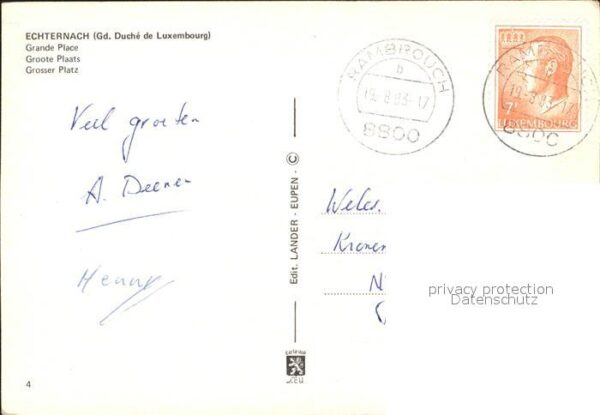 ECHTERNACH (Gd. Duché de Luxembourg)
Grande Place
Groote Plaats
Grosser Platz
Veel groeten
A.
Henny
4
Edit. LANDER - EUPEN - ©
RAMBROUCH
b
19-8 83-17
8800
7F
LUXEMBOURG
8800
Kronen
privacy protection
Datenschutz